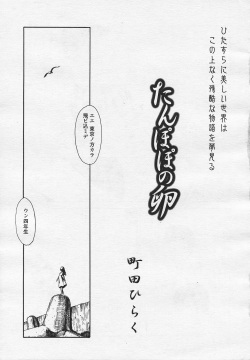 ひたすらに美しい世界は
この上なく残酷な物語を夢見る
たんぽぽの卵
町田ひらく
エエ 東京ノ方カラ
ウン四年生